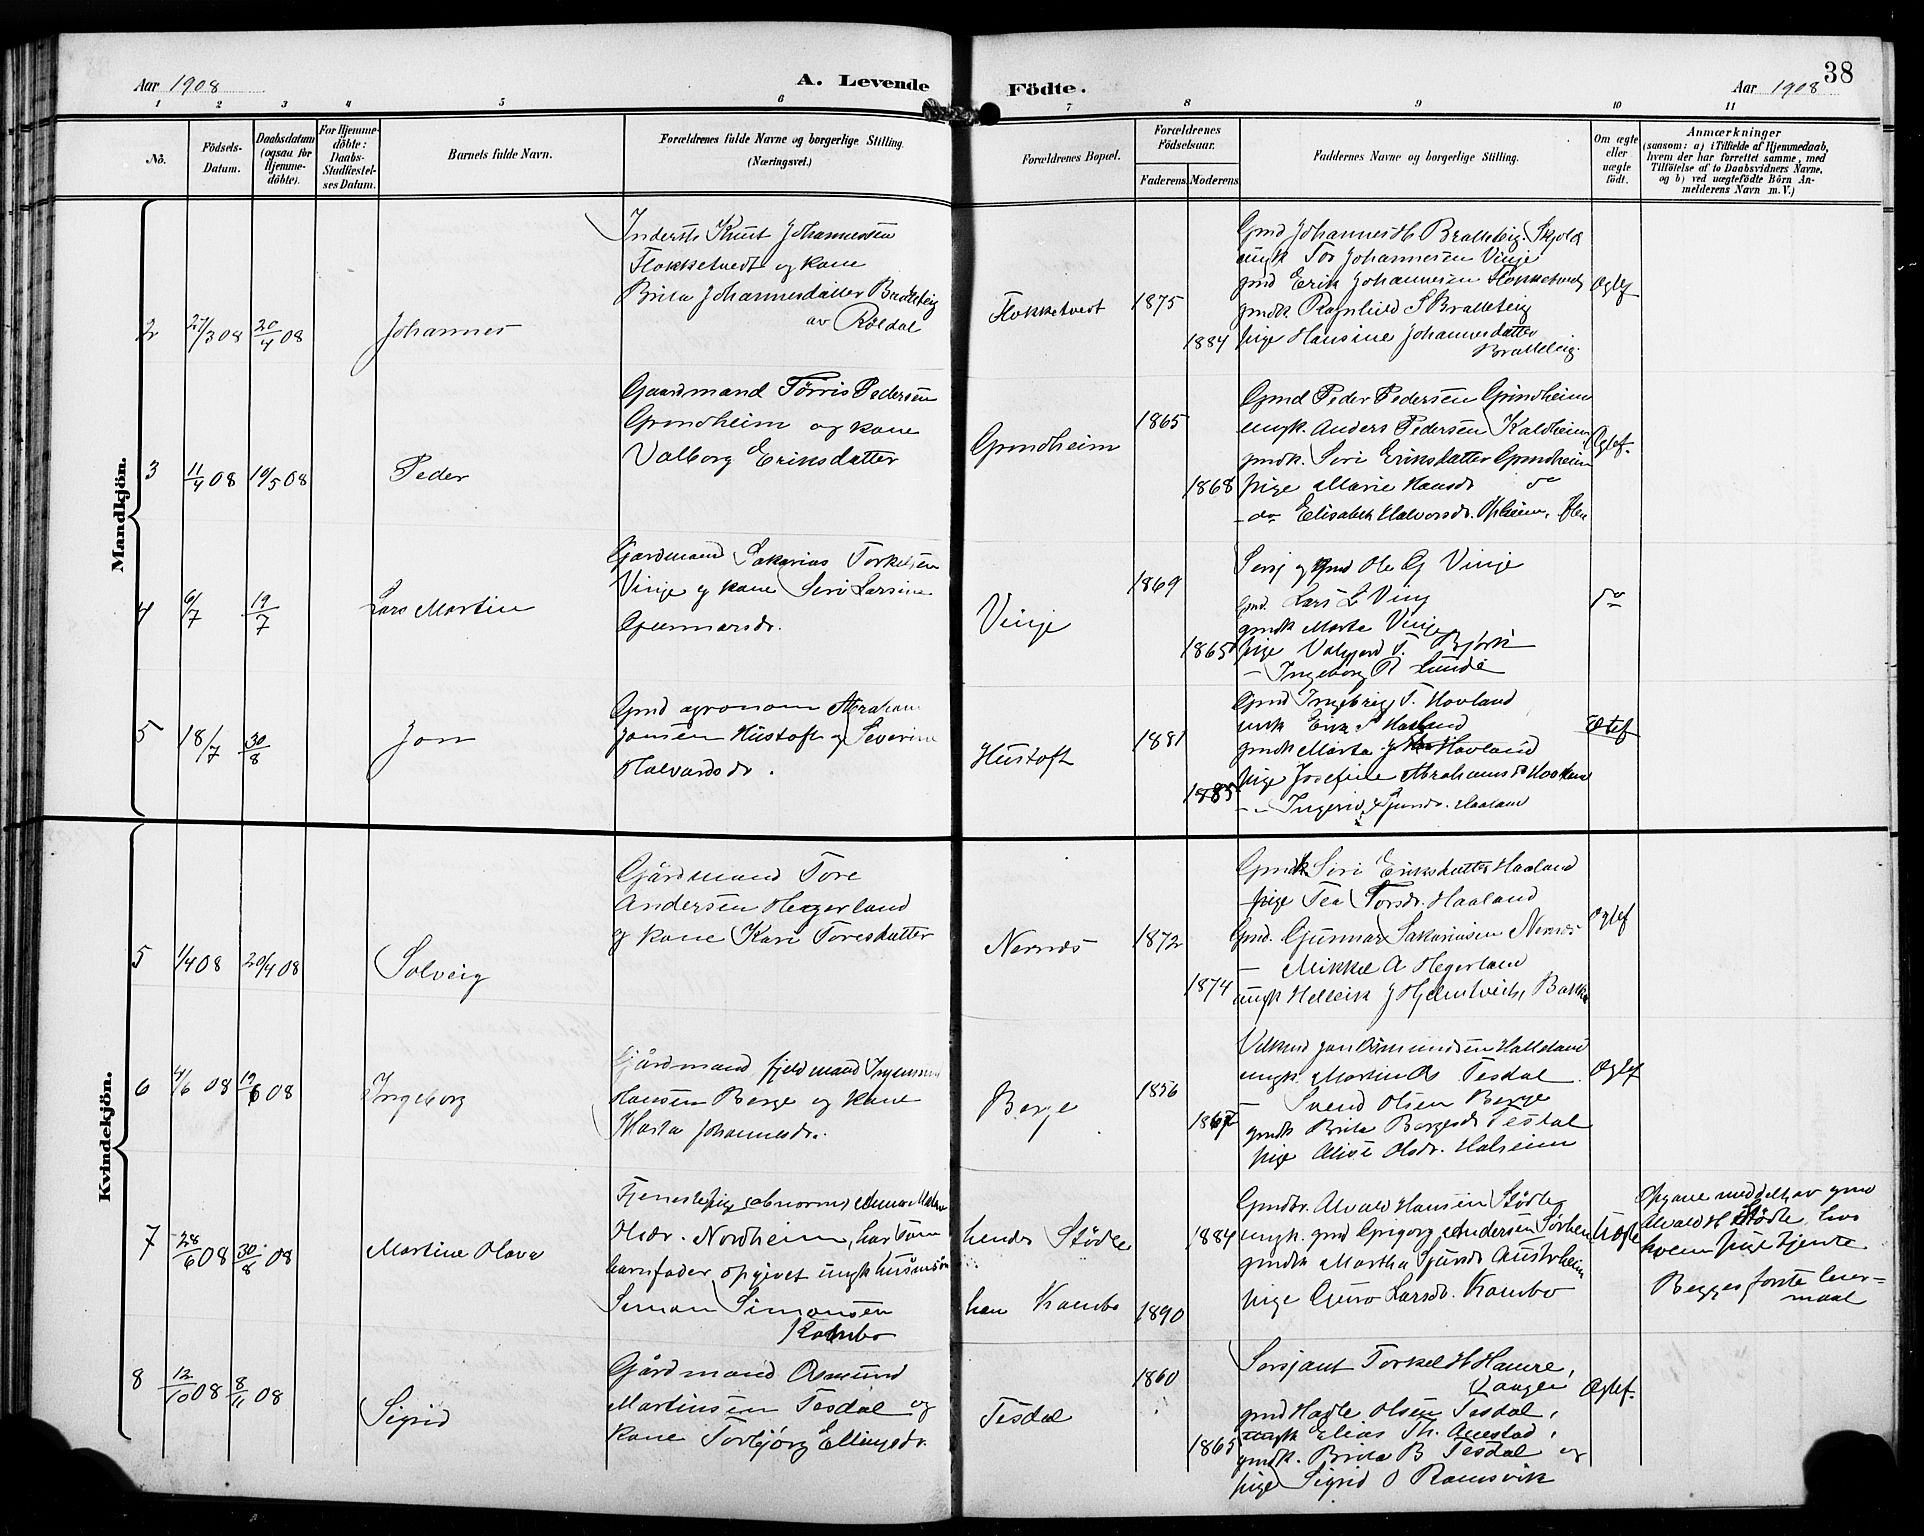 38
Aar 1908
A. Levende
Födte.
Aar 1908
1 2 3 4 5 6 7 8 9 10 11
No.
Födsels-
Datum.
Daabsdatum
(ogsaa for
Hjemme-
döbte).
For Hjemme-
döbte:
Daabs-
Stadfæstel-
ses Datum.
Barnets fulde Navn.
Forældrenes fulde Navne og borgerlige Stilling.
(Næringsvei.)
Forældrenes Bopæl.
Forældrenes
Födselsaar.
Faderens. Moderens.
Faddernes Navne og borgerlige Stilling.
Om ægte
eller
uægte
födt.
Anmærkninger
(saasom: a) i Tilfælde af Hjemmedaab,
hvem der har forrettet samme, med
Tilföielse af to Daabsvidners Navne,
og b) ved uægtefödte Börn An-
melderens Navn m. V.)
Mandkjön.
2
27/3 08
20/4 08
Johannes
Inderst Knut Johannessen
Flokketvedt og kone
Brita Johannesdatter Bratteteig
av Röldal
Flokketvedt
1875
1884
Gmd Johannes H Bratteteig Skjold
ungk Tor Johannesen Vinje
gmd Erik Johannesen Flokketvedt
gmdk Ragnhild S Bratteteig
pige Hansine Johannesdatter
Bratteteig
Ægtef
3
11/4 08
19/5 08
Peder
Gaardmand Tørris Pedersen
Grindheim og kone
Valborg Eriksdatter
Grindheim
1865
1868
Gmd Peder Pedersen Grindheim
ungk. Anders Pedersen Kaldheim
gmdk. Siri Eriksdatter Grindheim
pige Marie Hansdr do
- do Elisabeth Halvorsdr. Opheim,
Ægtef.
4
6/7
19/7
Lars Martin
Gardmand Sakarias Torkelsen
Vinje og kone Siri Larsine
Gunnarsdr.
Vinje
1869
1865
Sersj og gmd Ole G Vinje
gmd. Lars L Vinj
gmdk Marta Vinje
pige Valgjerd T. Bjørk
- Ingeborg R Lunde
do
5
18/7
30/8
Jon
Gmd agronom Abraham
Jonsen Hustoft og Severine
Halvardsdr.
Hustoft
1881
1885
Gmd Ingebrigt T. Hovland
ungk Erik S Haaland
gmdk Marta J Hovland
pige Josefine Abrahamsdr
- - Ingerid Gjunsdr. Haaland
Ægtef
Kvindekjön.
5
1/4 08
20/4 08
Solveig
Gårdmand Tore
Andersen Hegerland
og kone Kari Toresdatter
Nernes
1872
1874
Gmdk Siri Eriksdatter Haaland
pige Tea Torsdr. Haaland
Gmd. Gunnar Sakariasen Nernes
- Mikkel A Hegerland
ungk Helleik J Hjelmtveit, Bakka
Ægtef
6
4/6 08
19/6 08
Ingeborg
Gårdmand fjeldmand Ingemund
Hansen Berge og kone
Marta Johannesdr.
Berge
1856
1867
Velkund Jan Osmundsen Halleland
ungk. Martin A Tesdal
- Svend Olsen Berge
gmdk Brita Borgesdr Tesdal
pige Alise Olsdr. Halseim
Ægtef
7
28/6 08
30/8 08
Martine Olava
Tjenestepige, abnorm, Anna Malene
Olsdr. Nordheim, har som
barnfader opgivet ungk husmsøn
Simon Simonsen
Kambo
hendes Stödle
han Kambo
1884
1890
Gmdbr. Alvald Hansen Stödle
ungk. gmd Grigorg Andersen Sørhem
gmdsk Martha Sjursdr Austerheim
pige Guro Larsdr. Kambo
Uægte
Opgave meddelt av gmd
Alvald H Stødle, hos
hvem pige tjente
Begges første leier-
maal
8
12/10 08
8/11 08
Sigrid
Gårdmand Osmund
Martinsen Tesdal og
kone Torbjørg Ellingsdr.
Tesdal
1860
1865
Sersjant Torkel H Hamre,
Vangen
gmd Hadle Olsen Tesdal,
ungk Elias Th. Aunstad,
gmdk. Brita B Tesdal og
pige Sigrid O Ramsvik
Ægtef.